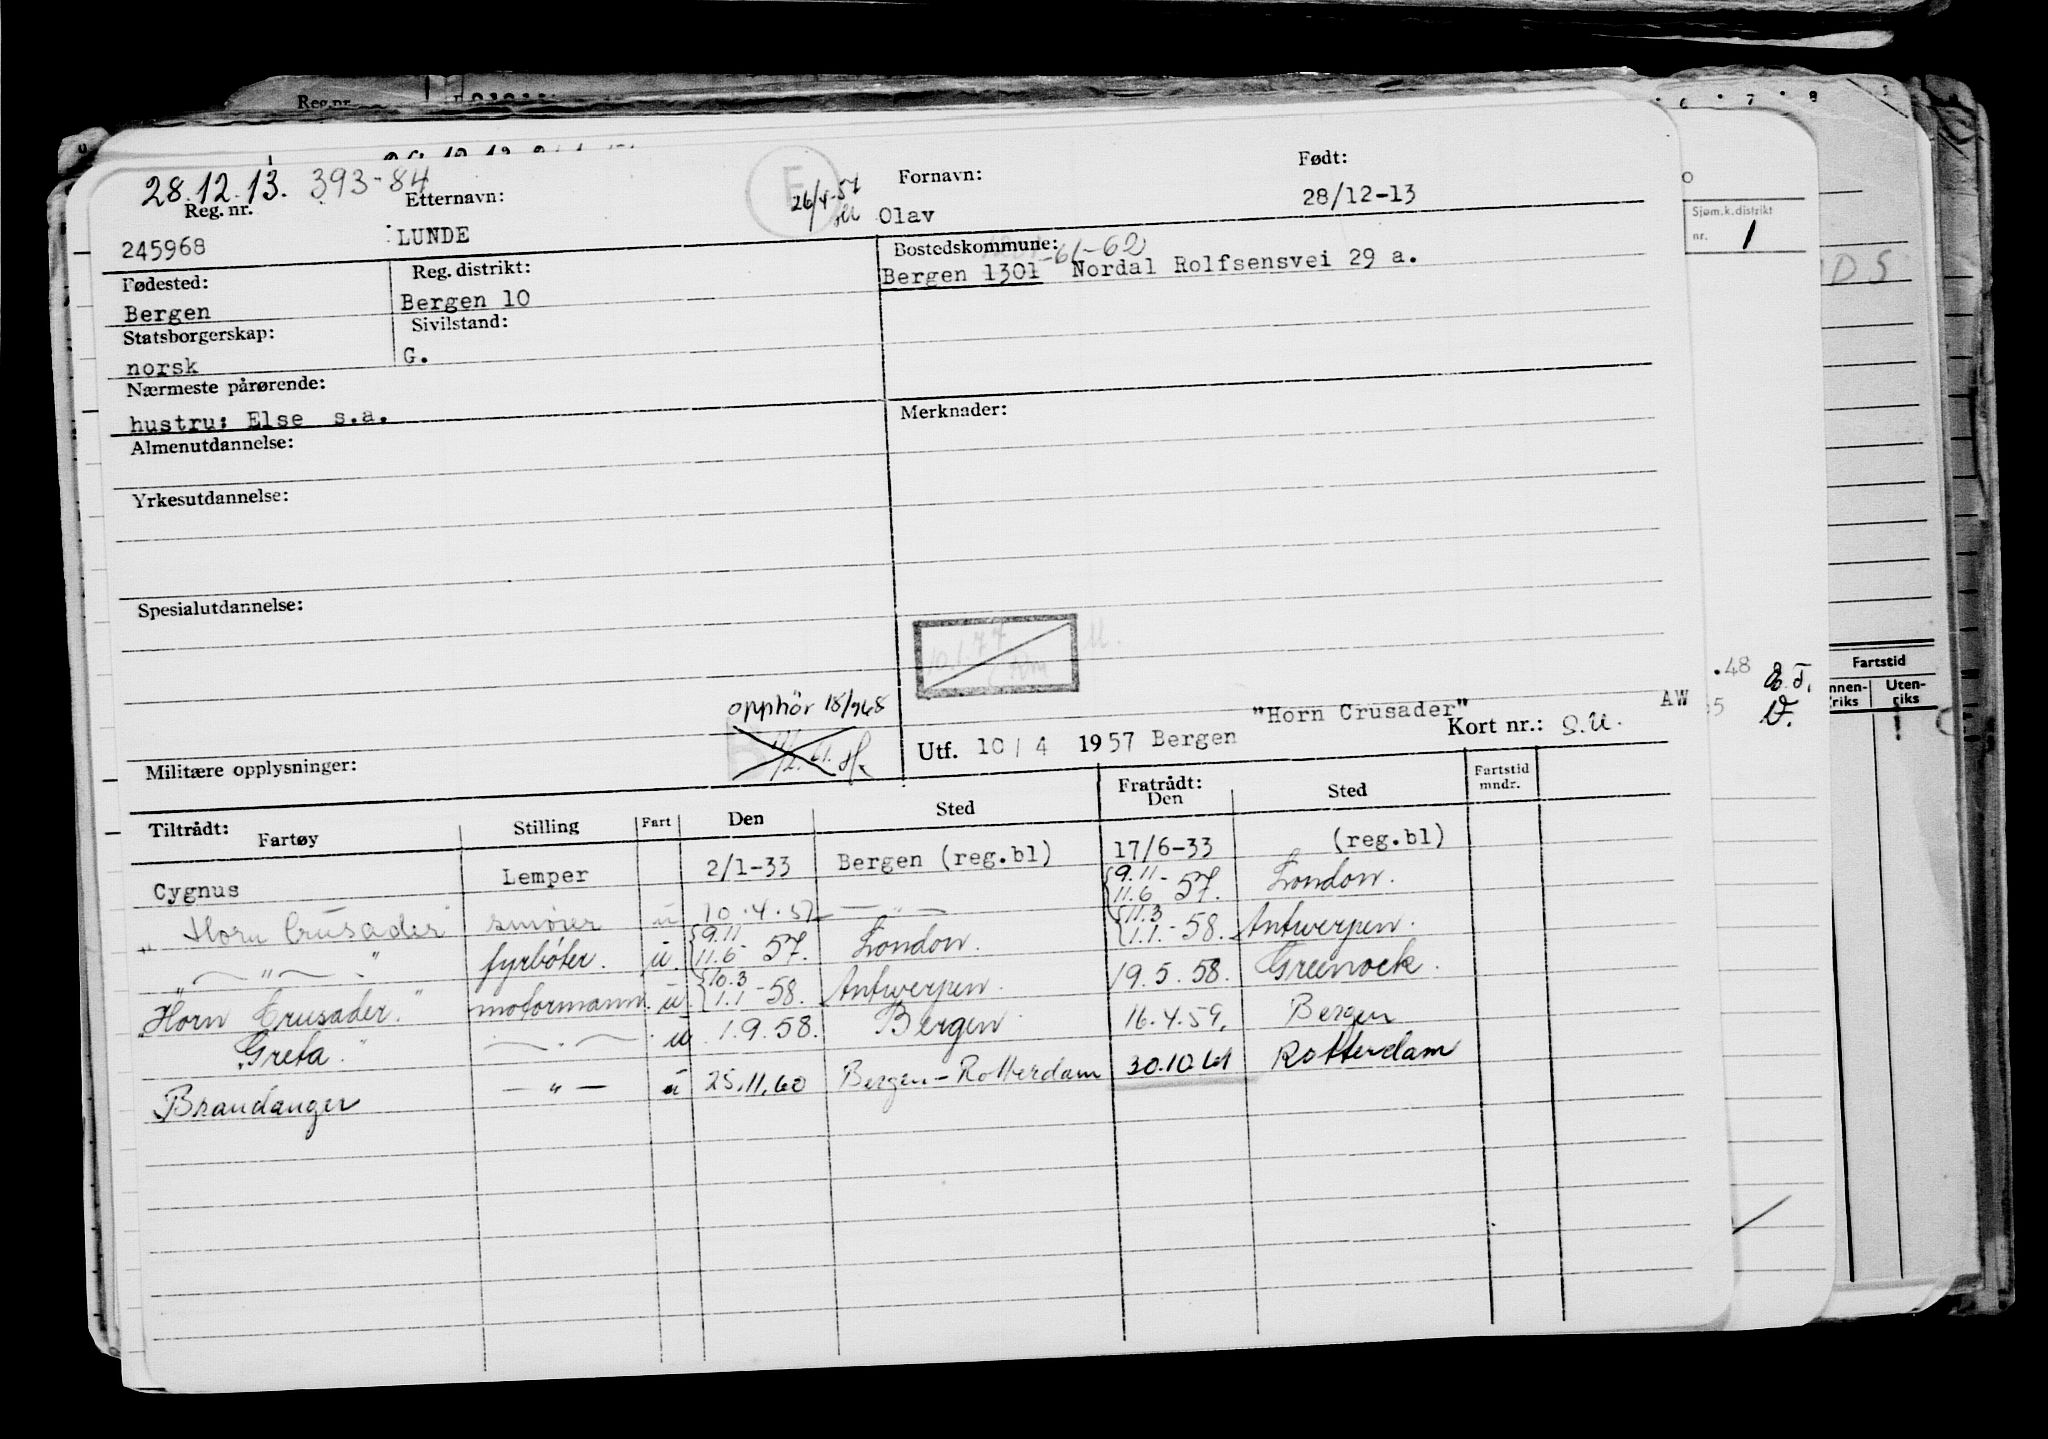 28.12.13. 393-84
Reg. nr.
Etternavn:
E
26/4-57
Fornavn:
Født:
245968
LUNDE
Olav
28/12-13
Fødested:
Reg. distrikt:
Bostedskommune:
-61-62
Bergen
Bergen 10
Bergen 1301 Nordal Rolfsensvei 29 a.
Statsborgerskap:
Sivilstand:
norsk
G.
Nærmeste pårørende:
hustru: Else s.a.
Merknader:
Almenutdannelse:
Yrkesutdannelse:
Spesialutdannelse:
10.1.77
opphör 18/968
Militære opplysninger:
"Horn Crusader"
AW
Utf. 10/4 1957 Bergen
Kort nr.: S.U.
Tiltrådt:
Fartøy Stilling Fart Den Sted Fratrådt: Den Sted Fartstid mndr.
Cygnus Lemper 2/1-33 Bergen (reg.bl) 17/6-33 (reg.bl)
"Horn Crusader" smører u 10.4.57 — " — {9.11 11.6 - 57. London.
— " — fyrbøter. u. {9.11 11.6 - 57. London. {11.3 1.1. - 58. Antwerpen.
"Horn Crusader." motormann. u. {10.3 1.1 - 58. Antwerpen. 19.5.58. Greenock.
"Greta." — " — u. 1.9.58. Bergen 16.4.59. Bergen
Brandanger — " — u 25.11.60 Bergen-Rotterdam 30.10.61 Rotterdam
Reg.nr.
6 7 8
Sjøm.k.distrikt
nr. 1
DS
.48
Fartstid
Innen-riks
Uten-riks